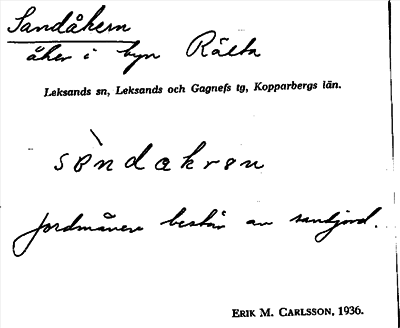 Sandåkern
åker i byn Rälta
Leksands sn, Leksands och Gagnefs tg, Kopparbergs län.
sèndakren
Jordmånen består av sandjord.
ERIK M. CARLSSON, 1936.